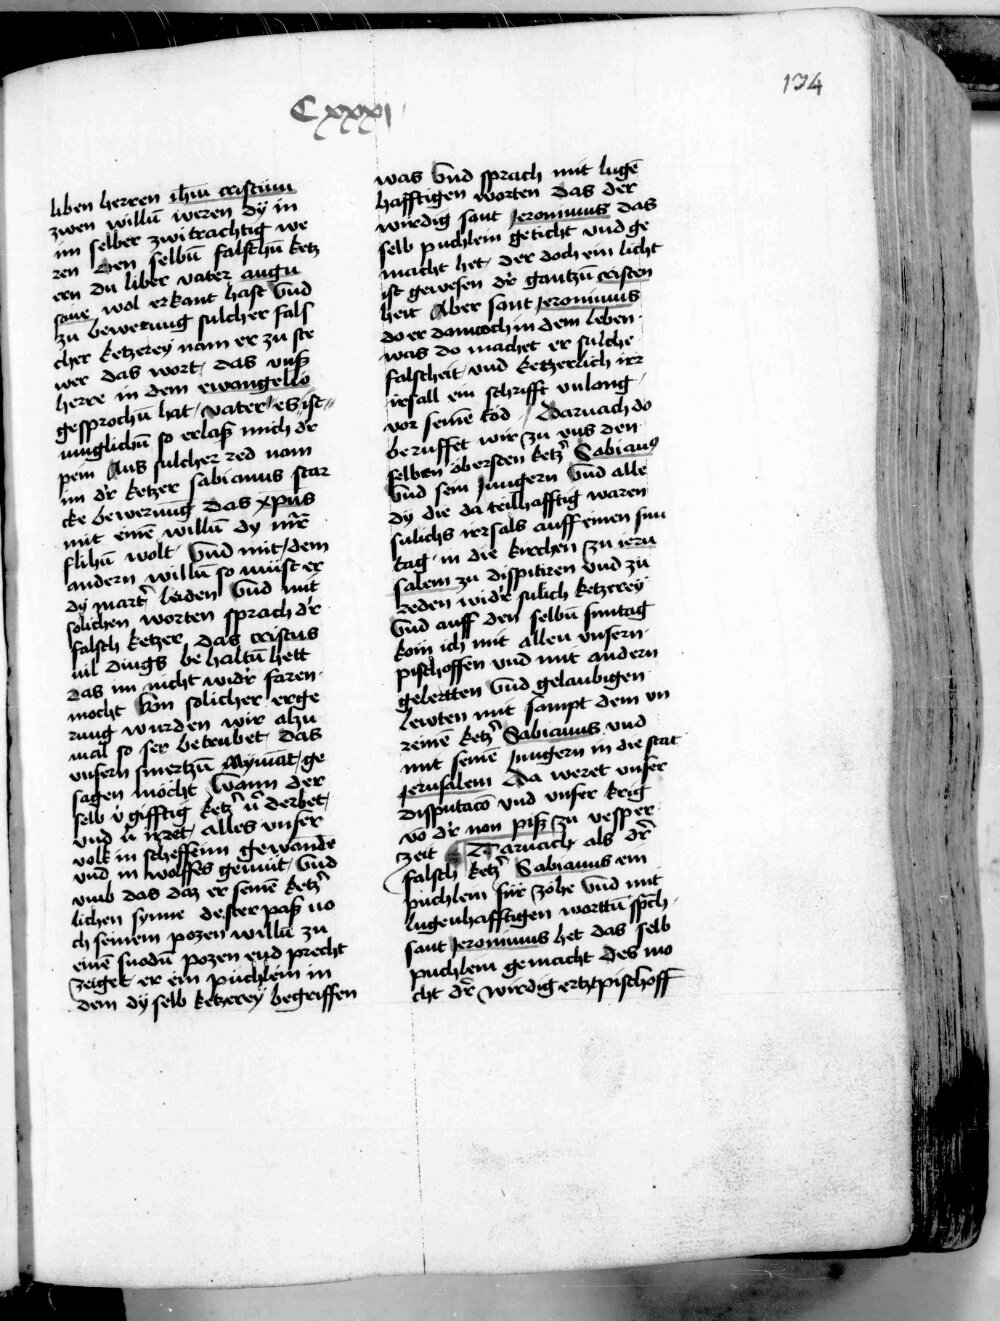 134
Cxxxi
liben herren ih̄m cristum
zwen willū weren dy in
im selber zwitrachtig we
ren Den selbū falschū ketz
ern du liber vater augu
stine wol erkant hast Vnd
zu bewerung sulcher fals
cher ketzerey nam er zu ste
wer das wort, das vnß
herre in dem ewangelio
gesprochū hat, vater, es ist
muglichū so erlaß mich dr̄
pein Aus sulcher red nam
im dr̄ ketzer sabianus star
cke bewerung das xp̄us
mit einē willū dy mr̄t̄
flihū wolt Vnd mit dem
andern willū so müist er
dy martr̄ leiden Vnd mit
solichen worten sprach dr̄
falsch ketzer das cristus
vil dings behaltū hett
das im nicht widr̄ faren
mocht Von solicher erge
rung wurden wir alzu
mal so ser betrubet das
vnsern smertzū nymāt ge
sagen möcht Wann der
selb v̄gifftig ketzr̄ v̄derbet,
vnd v̄irret, alles vnser
volk in scheffeinn gewande
vnd in wolffes gemüt, Vnd
vmb das daz er seinē ketzr̄
lichen synne dester paß no
ch seinem pozen willū zu
einē snodū pozen end precht
zeiget er ein püchlein in
dem dy selb ketzerey begriffen
was Vnd sprach mit lugē
hafftigen worten das der
wirdig sant Jeronimus das
selb puchlein geticht vnd ge
macht het, der doch ein licht
ist gewesen dr̄ gantzū cristen
heit Aber sant Jeronimus
do er dannoch in dem leben
was do machet er sulche
falscheit vnd ketzerlich irr
irsall ein schrifft vnlang
vor seinē tod, Darnach do
beruffet wir zu vns den
selben öbersten ketzr̄ Sabianꝰ
Vnd sein Jungern Vnd alle
dy die da teilhafftig waren
sulichs irrsals auff einen sun
tag in die kirchen zu ieru
salem zu dispitiren vnd zu
reden widr̄ sulich ketzerey
Vnd auff den selbū suntag
kom ich mit allen vnsern
pischoffen vnd mit andern
gelertten Vnd gelaubigen
lewten mit sampt dem vn
reinē ketzr̄ Sabianus vnd
mit seinē Jungern in die stat
Jerusalem Da weret vnser
disputacō vnd vnser krig
vō dr̄ non piß zu vesper
zeit Darnach als dr̄
falsch ketzr̄ Sabianus ein
puchlein für zohe Vnd mit
lugenhafftigen worttū sp̄ch
sant Jeronimus het das selb
puchlein gemacht Des mo
cht dr̄ wirdig ertzpischoff